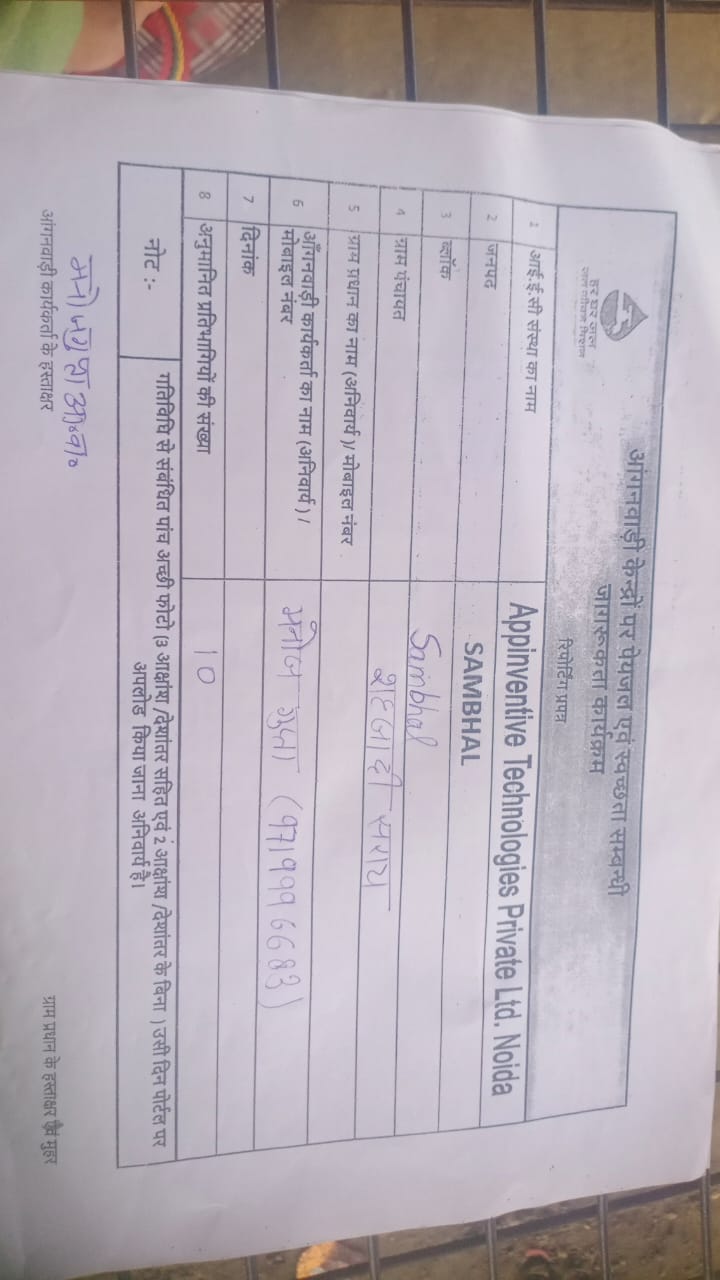 हर घर जल
जल जीवन मिशन
आंगनवाड़ी केन्द्रों पर पेयजल एवं स्वच्छता सम्बन्धी
जागरूकता कार्यक्रम
रिपोर्टिंग प्रपत्र
1 आई.ई.सी संस्था का नाम Appinventive Technologies Private Ltd. Noida
2 जनपद SAMBHAL
3 ब्लॉक Sambhal
4 ग्राम पंचायत शहजादी सराय
5 ग्राम प्रधान का नाम (अनिवार्य)/ मोबाइल नंबर
6 आँगनवाड़ी कार्यकर्ता का नाम (अनिवार्य) /
मोबाइल नंबर
मनोज गुप्ता (9719996683)
7 दिनांक
8 अनुमानित प्रतिभागियों की संख्या 10
नोट :- गतिविधि से संबंधित पांच अच्छी फोटो (3 आक्षांश /देशांतर सहित एवं 2 आक्षांश /देशांतर के बिना ) उसी दिन पोर्टल पर
अपलोड किया जाना अनिवार्य है।
मनोज गुप्ता आ०वा०
आंगनवाड़ी कार्यकर्ता के हस्ताक्षर ग्राम प्रधान के हस्ताक्षर एवं मुहर